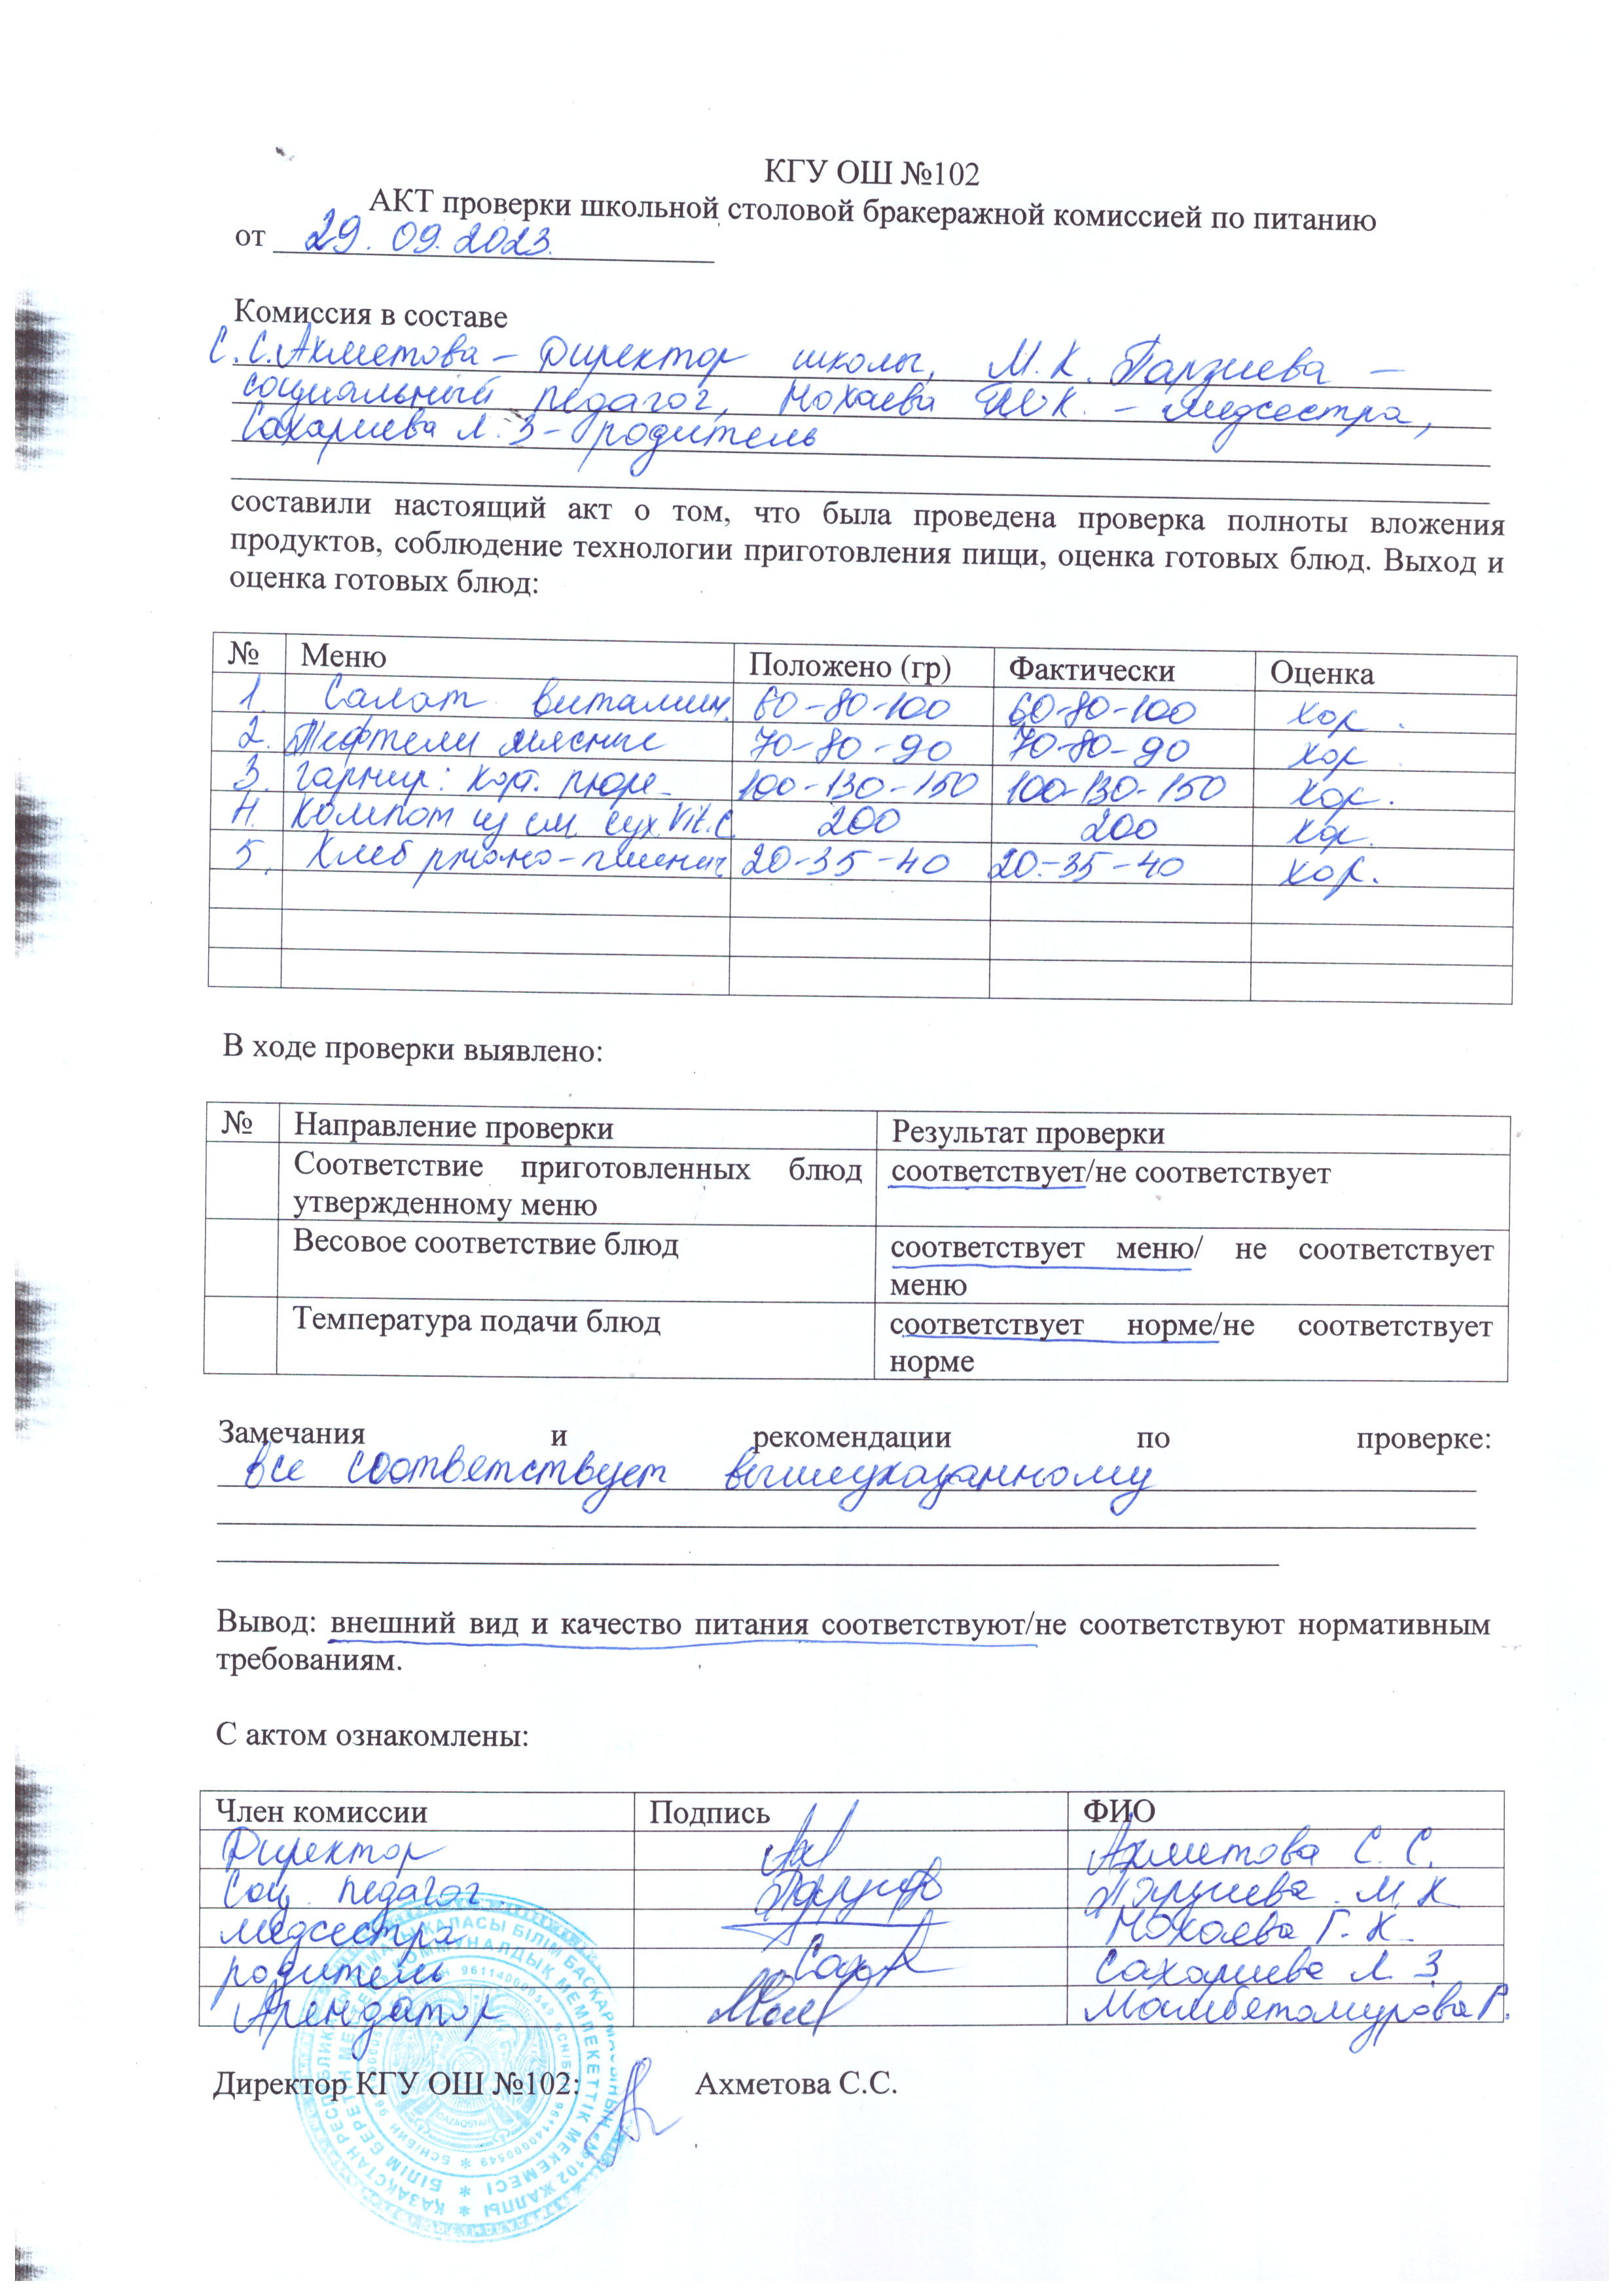 КГУ ОШ №102
АКТ проверки школьной столовой бракеражной комиссией по питанию
от 29.09.2023.
Комиссия в составе
С.С.Ахметова – Директор школы, М.К. Парзиева –
социальный педагог, Мохаева К. – медсестра,
Сахариева Л.З – родитель
составили настоящий акт о том, что была проведена проверка полноты вложения
продуктов, соблюдение технологии приготовления пищи, оценка готовых блюд. Выход и
оценка готовых блюд:
№ Меню Положено (гр) Фактически Оценка
1. Салат витамин. 60-80-100 60-80-100 хор.
2. Тефтели мясные 70-80-90 70-80-90 хор
3. гарнир: карт. пюре 100-130-150 100-130-150 хор.
4. Компот из см. сух. Vit. C 200 200 хор.
5. Хлеб ржано-пшенич 20-35-40 20-35-40 хор.
В ходе проверки выявлено:
№ Направление проверки Результат проверки
Соответствие приготовленных блюд соответствует/не соответствует
утвержденному меню
Весовое соответствие блюд соответствует меню/ не соответствует
меню
Температура подачи блюд соответствует норме/не соответствует
норме
Замечания и рекомендации по проверке:
все соответствует вышеуказанному
Вывод: внешний вид и качество питания соответствуют/не соответствуют нормативным
требованиям.
С актом ознакомлены:
Член комиссии Подпись ФИО
Директор Ахметова С. С.
Соц педагог Парзиева М. К
медсестра Мохаева Г. К.
родитель Сахариева Л З
Арендатор Мамбетомурова Р.
Директор КГУ ОШ №102: Ахметова С.С.